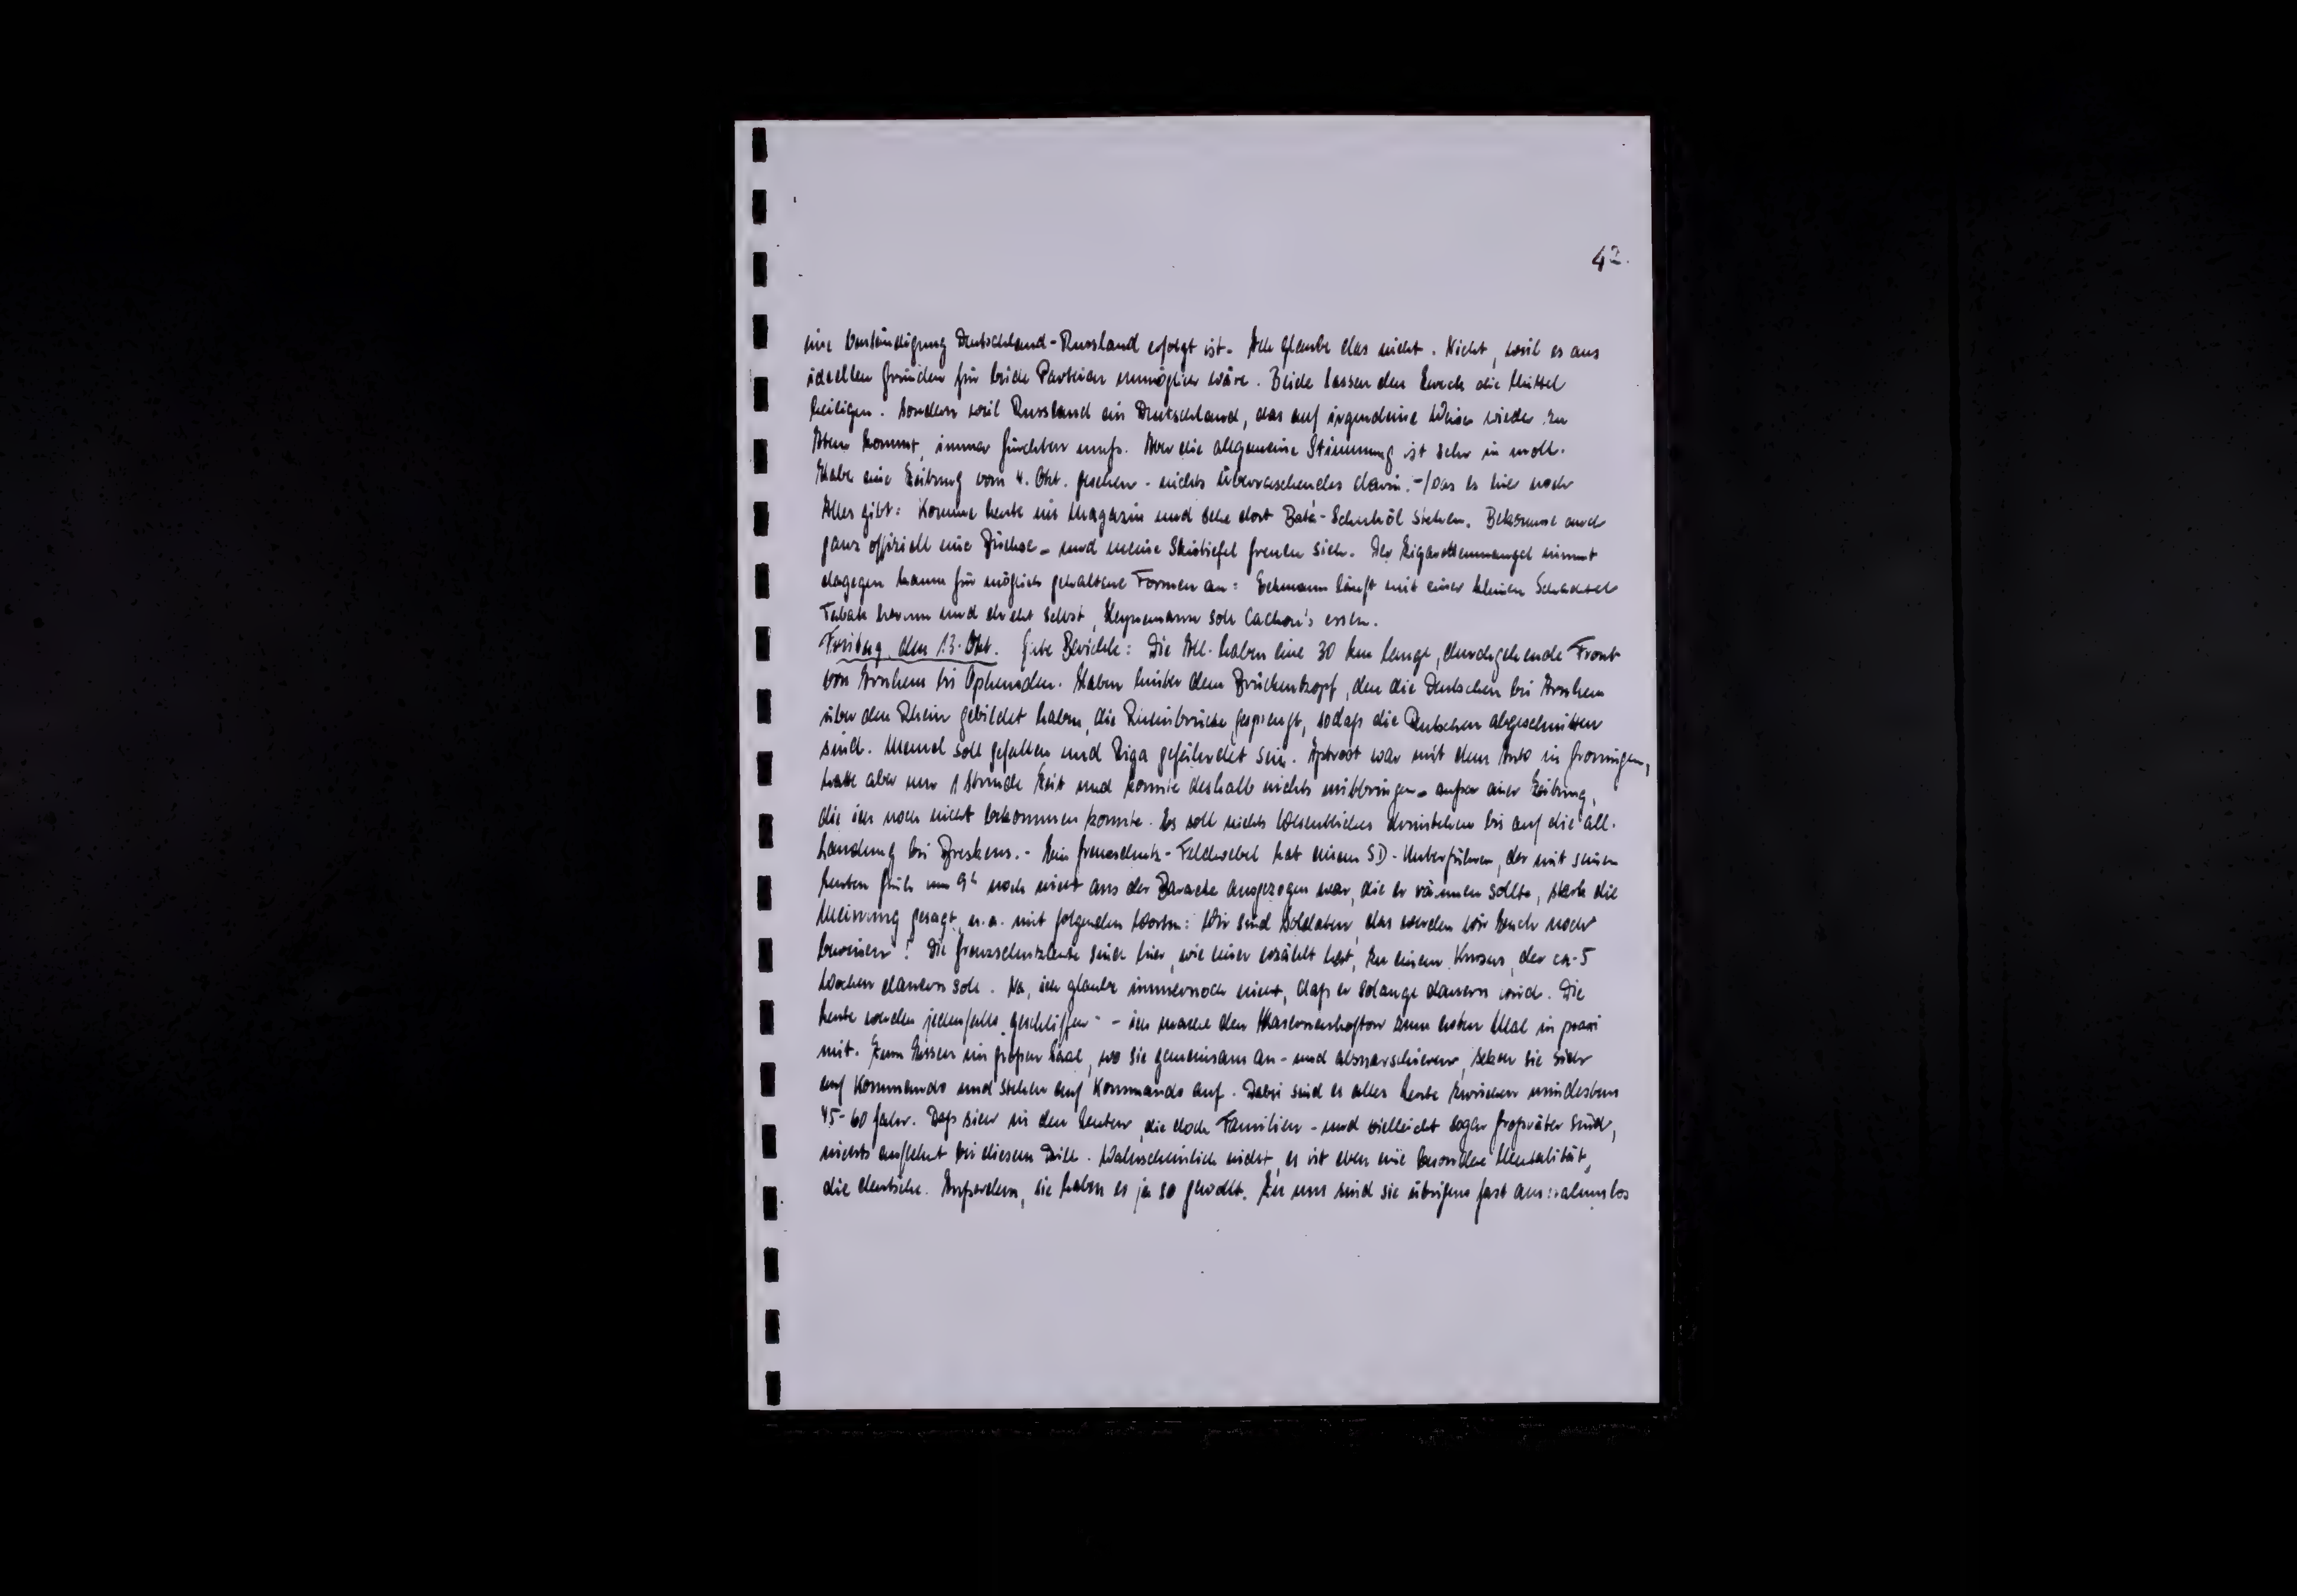 42.
eine Verständigung Deutschland-Russland erfolgt ist. Ich glaube das nicht. Nicht, weil es aus
ideellen Gründen für beide Parteien unmöglich wäre. Beide lassen den Zweck die Mittel
heiligen. Sondern weil Russland ein Deutschland, das auf irgendeine Weise wieder zu
Atem kommt, immer fürchten muß. Aber die allgemeine Stimmung ist sehr in moll.
Habe eine Zeitung vom 4. Okt. gesehen - nichts Überraschendes darin. - Was es hier noch
Alles gibt: Komme heute ins Magazin und sehe dort Bata-Schuhöl stehen. Bekomme auch
ganz offiziell eine Büchse - und meine Skistiefel freuen sich. Der Zigarettenmangel nimmt
dagegen kaum für möglich gehaltene Formen an: läuft mit einer kleinen Schachtel
Tabak herum und dreht selbst, Heynemann soll Cachou's essen.
Freitag, den 13. Okt. Gute Berichte: Die All. haben eine 30 km lange, durchgehende Front
von Arnhem bis Opheusden. Haben hinter dem Brückenkopf, den die Deutschen bei Arnhem
über den Rhein gebildet haben, die Rheinbrücke gesprengt, sodaß die Deutschen abgeschnitten
sind. Memel soll gefallen und Riga gefährdet sein. war mit dem Auto in Groningen,
hatte aber nur 1 Stunde Zeit und konnte deshalb nichts mitbringen - außer einer Zeitung,
die ich noch nicht bekommen konnte. Es soll nichts Wesentliches drinstehen bis auf die all.
Landung bei Breskens. - Ein Grenzschutz-Feldwebel hat einem SD-Unterführer, der mit seinen
Leuten früh um 9h noch nicht aus der Baracke ausgezogen war, die er räumen sollte, stark die
Meinung gesagt, u.a. mit folgenden Worten: Wir sind Soldaten, das werden wir Euch noch
beweisen! Die Grenzschutzleute sind hier, wie einer erzählt hat, zu einem Kursus, der ca. 5
Wochen dauern soll. Na, ich glaube immernoch nicht, daß er solange dauern wird. Die
Leute werden jedenfalls "geschliffen" - ich mache den Kasernenhofton zum ersten Mal in praxi
mit. Zum Essen im großen Saal, wo sie gemeinsam an- und abmarschieren, setzen sie sich
auf Kommando und stehen auf Kommando auf. Dabei sind es alles Leute zwischen mindestens
45-60 Jahr. Daß sich in den Leuten, die doch Familien- und vielleicht sogar Großväter sind,
nichts auflehnt bei diesem Drill. Wahrscheinlich nicht, es ist eben eine besondere Mentalität,
die deutsche. Außerdem, sie haben es ja so gewollt. Zu uns sind sie übrigens fast ausnahmslos